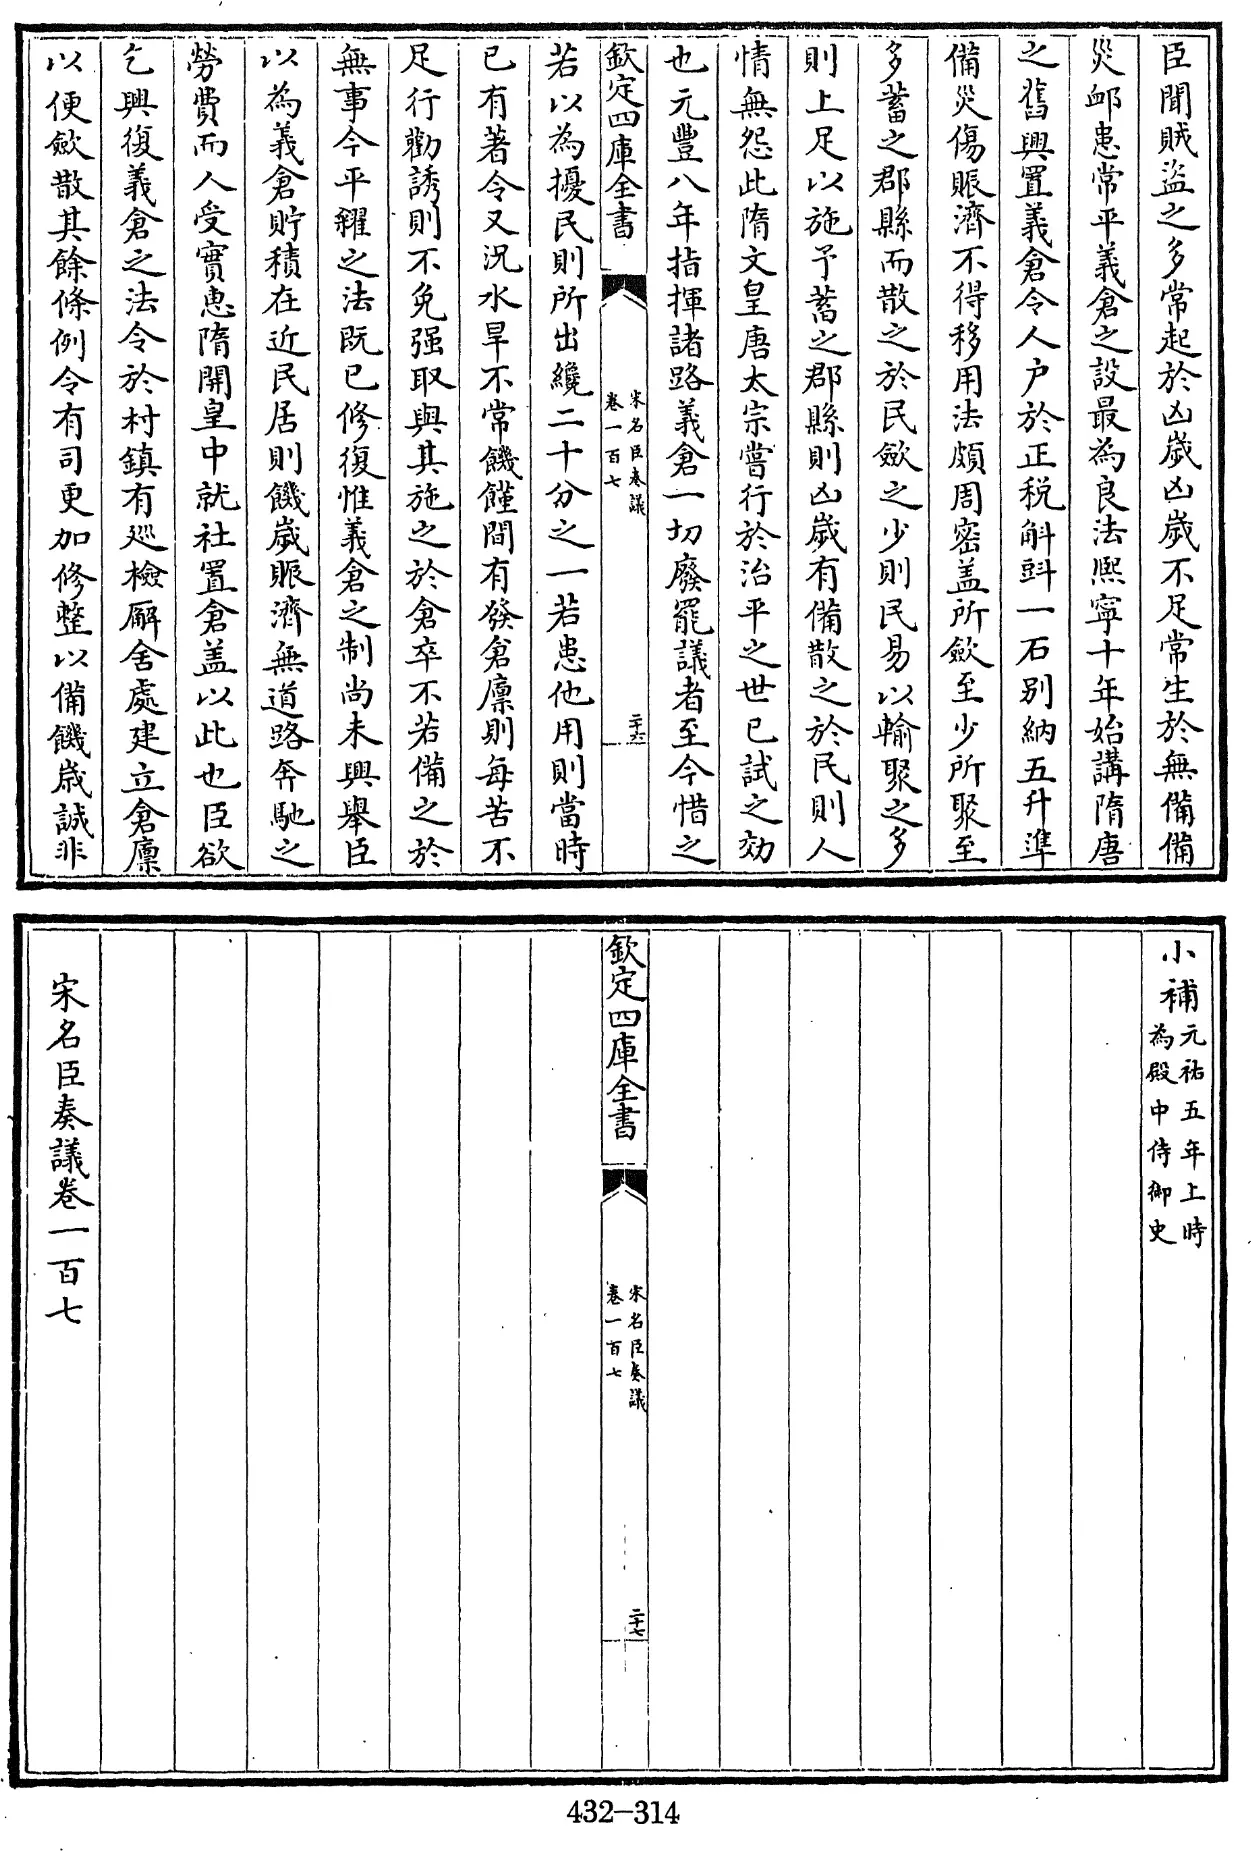 臣聞賊盜之多常起於凶歲凶歲不足常生於無備備
災䘏患常平義倉之設最為良法熈寧十年始講隋唐
之舊興置義倉令人户於正税斛㪷一石别納五升準
備災傷賑濟不得移用法頗周密盖所歛至少所聚至
多蓄之郡縣而散之於民歛之少則民易以輸聚之多
則上足以施予蓄之郡縣則凶歲有備散之於民則人
情無怨此隋文皇唐太宗嘗行於治平之世已試之効
也元豐八年指揮諸路義倉一切廢罷議者至今惜之
欽定四庫全書
宋名臣奏議
卷一百七
二十六
若以為擾民則所出纔二十分之一若患他用則當時
已有著令又況水旱不常饑饉間有發倉廩則每苦不
足行勸誘則不免强取與其施之於倉卒不若備之於
無事今平糴之法既已修復惟義倉之制尚未興舉臣
以為義倉貯積在近民居則饑歲賑濟無道路奔馳之
勞費而人受實惠隋開皇中就社置倉盖以此也臣欲
乞興復義倉之法令於村鎮有廵檢廨舍處建立倉廩
以便歛散其餘條例令有司更加修整以備饑歲誠非
小補
元祐五年上時
為殿中侍御史
欽定四庫全書
宋名臣奏議
卷一百七
二十七
宋名臣奏議卷一百七
432-314